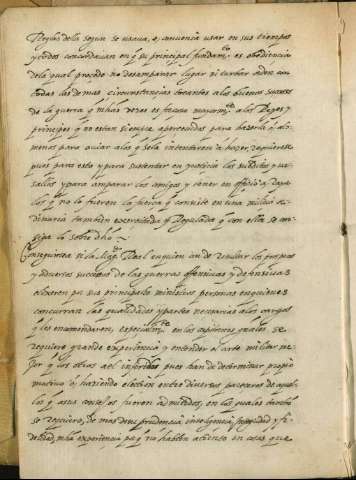 Reglas de la segun se usaua, e, conuenia usar en sus tiempos
y todos concordauan en q su principal fundamto es obediencia
de la qual procede no desamparar lugar ni turbar orden con
todas las demas circunstancias tocantes a los buenos sucesos
de la guerra q muchas vezes es forçoso mayormte a los Reyes y
principes q no esten siempre aperceuidos para hazerla o al
menos para ouiar a los q se la intentaren a hazer, requierese
pues para esto y para sustentar en justicia los subditos y ua
sallos y para amparar los amigos y tener en officio a
los q no lo fueren la fuerça q consiste en una milicia
dinaria tambien exercitada y Regulada q con ella se con
siga lo sobre dho
Conseguirsea si la Magd Real en quien an de Resultar los prosperos
y aduersos sucesos de las guerras offensiuas y defensiuas
eligeren para sus principales ministros personas en quienes
concurran las qualidades y partes necesarias a los cargos
q les encomendaren, especialmte en los capitanes quales se
requiere grande experiencia y entender el arte militar me
jor q los otros a el inferiores pues han de determinar proprio
motiuo o haziendo election entre diuersos pareceres de aque
llos q a sus consejos fueren admitidos, en los quales tambien
se requiere, de mas de ser prudencia inteligencia, seguridad y fi
delidad, mucha experiencia para q no hablen a tiento en cosas que